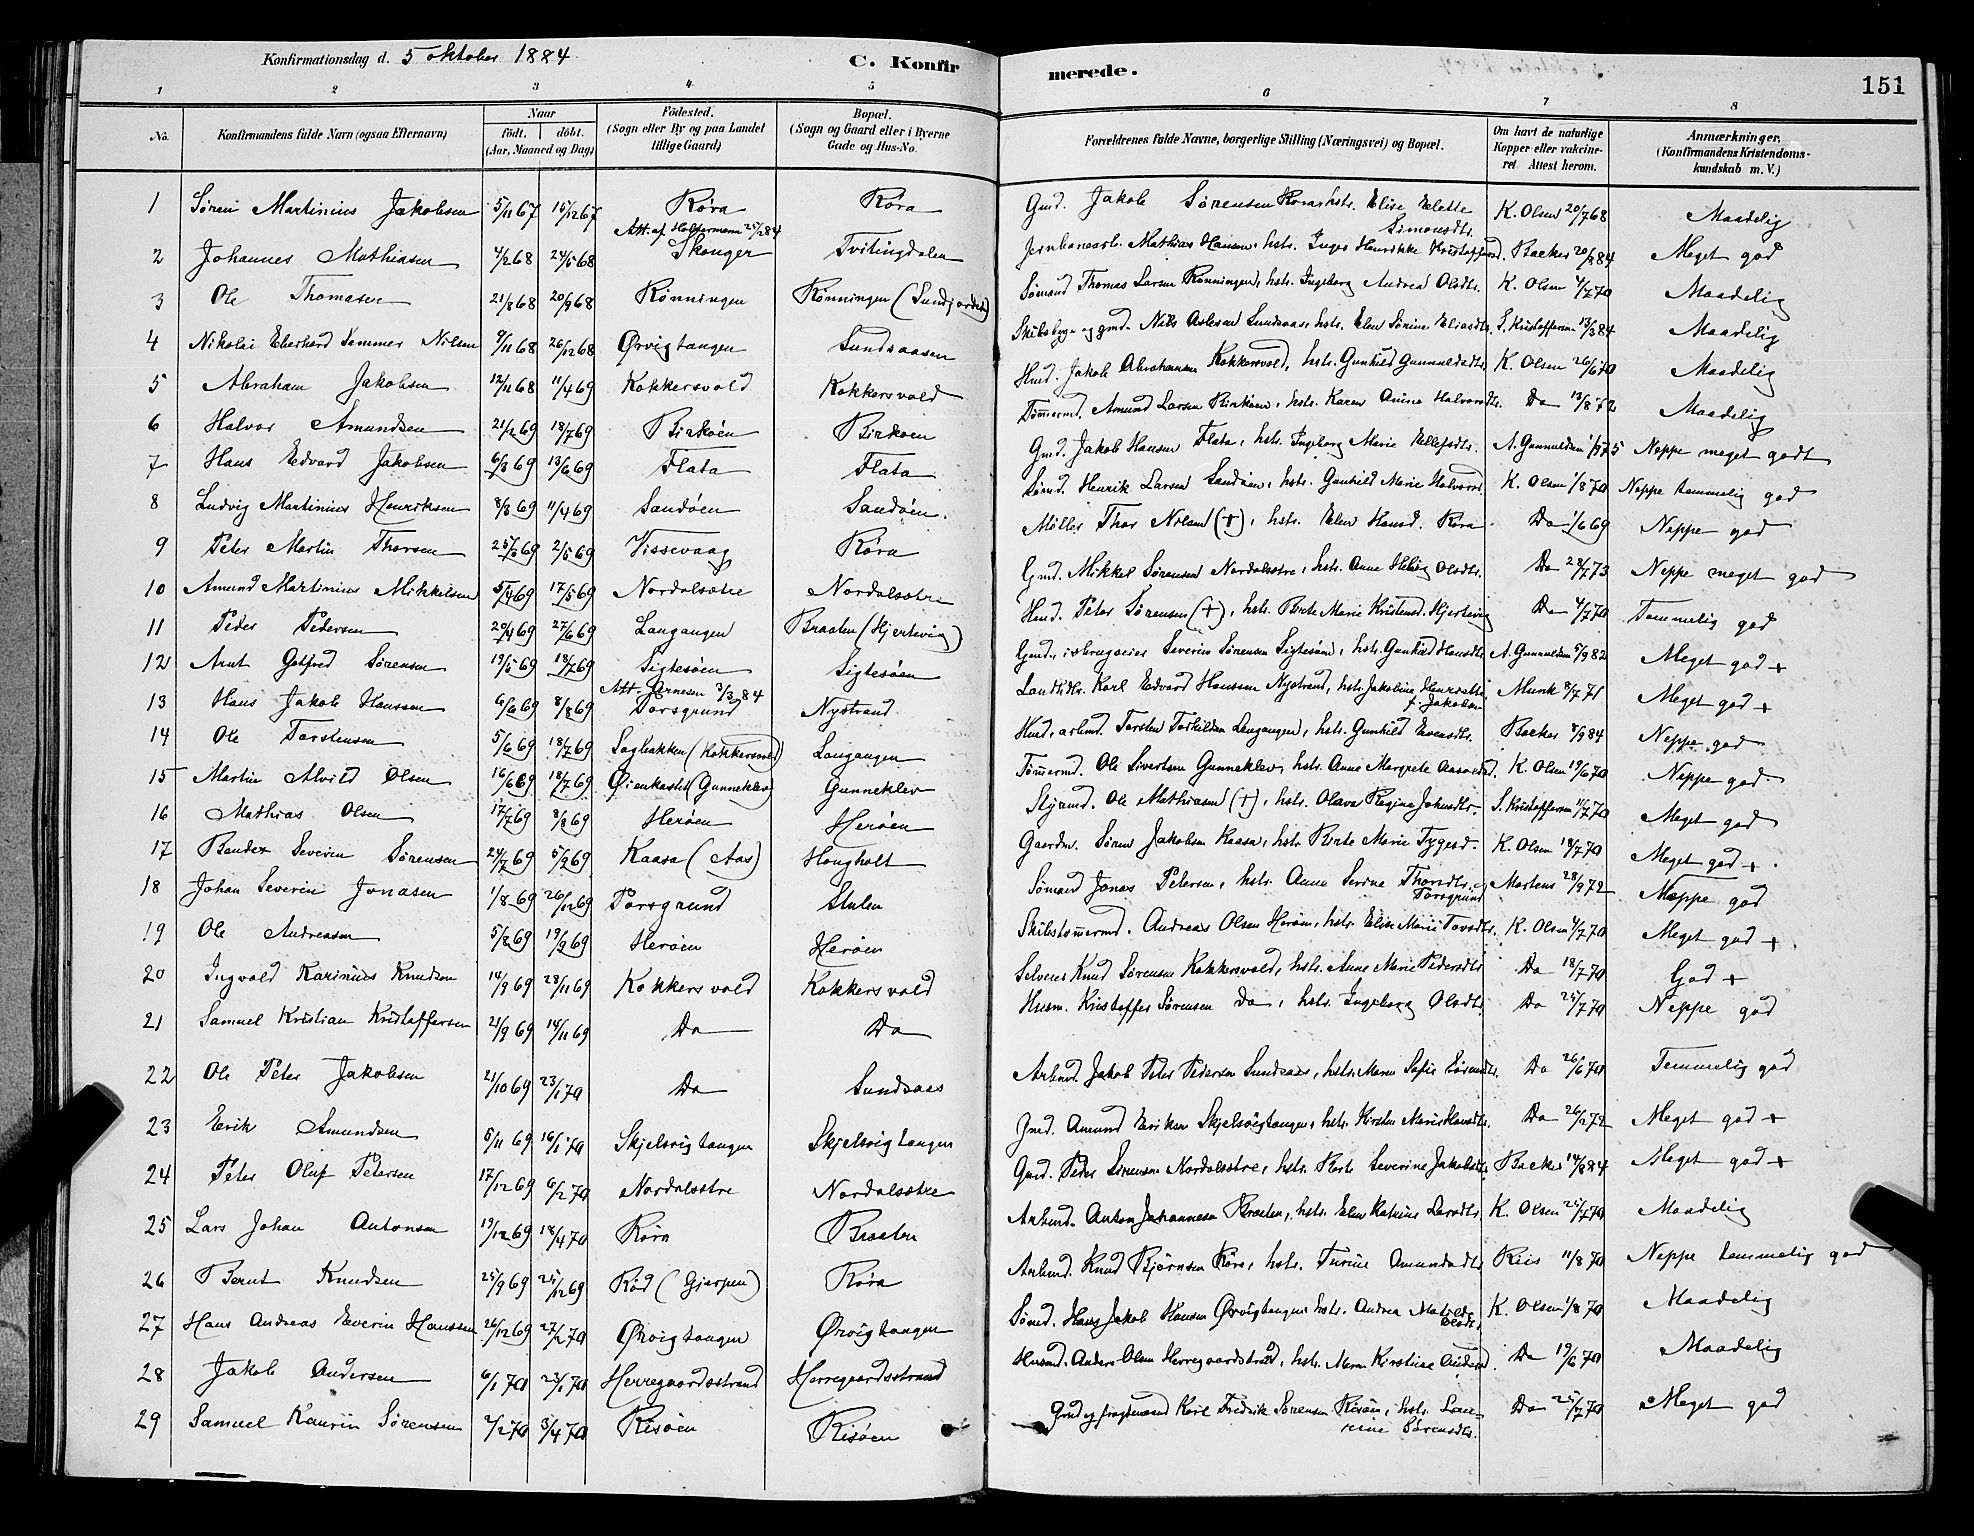 Konfirmationsdag d. 5 oktober 1884
C. Konfirmerede.
151
1 2 3 4 5 6 7 8
No.
Konfirmandens fulde Navn (ogsaa Efternavn)
Naar
födt. döbt.
(Aar, Maaned og Dag)
Födested.
(Sogn eller By og paa Landet
tillige Gaard)
Bopæl.
(Sogn og Gaard eller i Byerne
Gade og Hus-No.
Forældrenes fulde Navne, borgerlige Stilling (Næringsvei) og Bopæl.
Om havt de naturlige
Kopper eller vakcine-
ret Attest herom.
Anmærkninger.
(Konfirmandens Kristendoms-
kundskab m. V.)
1 Sören Martinius Jakobsen 5/11 67 15/12 67 Röra Röra Gmd. Jakob Sörensen Röra hstr. Elise Elette Simonsdtr. K. Olsen 20/7 68 Maadelig
2 Johannes Mathiasen 4/2 68 24/5 68 Att. af Holtermann 25/2 84 Skonger Tvitingdalen Jernbanearb. Mathias Hansen, hstr. Inger Henrikke Kristoffersd. Backer 20/8 84 Meget god
3 Ole Thomasen 21/8 68 20/9 68 Rönningen Rönningen (Sundjordet) Sömand Thomas Larsen Rönningen, hstr. Ingeborg Andrea Olsdtr. K. Olsen 4/7 70 Maadelig
4 Nikolai Eberhard Semmer Nilsen 9/11 68 26/12 68 Ørvigtangen Sundsaasen Skibsbygr. og gmd. Nils Aslesen Sundsaas, hstr. Elen Sörine Eliasdtr. S. Kristoffersen 13/3 84 Maadelig
5 Abraham Jakobsen 12/11 68 11/4 69 Kokkersvold Kokkersvold Hmd. Jakob Abrahamsen Kokkersvold, hstr. Gunhild Gunnulsdtr. K. Olsen 26/6 70 Maadelig
6 Halvor Amundsen 21/2 69 18/7 69 Birköen Birköen Tömmermd. Amund Larsen Birköen, hstr. Karen Anine Halvorsdtr. Do 13/8 72 Maadelig
7 Hans Edvard Jakobsen 6/3 69 13/6 69 Flata Flata Gmd. Jakob Hansen Flata, hstr. Ingeborg Marie Ellefsdtr. A. Gunnuldsen 1/9 75 Neppe meget godt
8 Ludvig Martinius Henriksen 8/3 69 11/4 69 Sandöen Sandöen Sömd. Henrik Larsen Sandöen, hstr. Gunhild Marie Halvorsd. K. Olsen 1/8 70 Neppe temmelig god
9 Peter Martin Thorsen 25/3 69 2/5 69 Vissevaag Röra Möller Thor Noland (+), hstr. Elen Hansd. Röra Do 1/6 69 Neppe god
10 Amund Martinius Mikkelsen 5/4 69 17/5 69 Nordalsetre Nordalsetre Gmd. Mikkel Sörensen Nordalsetre, hstr. Anne Helvig Olsdtr. Do 28/7 73 Neppe meget god
11 Peder Pedersen 20/4 69 27/6 69 Langangen Braaten (Hjertevig) Hmd. Peter Sörensen (+), hstr. Berte Marie Kristensd. Hjertevig Do 4/7 70 Temmelig god
12 Arnt Gotfred Sörensen 19/5 69 18/7 69 Sigtesöen Sigtesöen Gmd., isbrugseier Severin Sörensen Sigtesöen, hstr. Gunhild Hansdtr. A. Gunnuldsen 9/9 82 Meget god +
13 Hans Jakob Hanssen 6/6 69 8/8 69 Att. Arnesen 3/3 84 Porsgrund Nystrand Landhdlr. Karl Edvard Hanssen Nystrand, hstr. Jakoline Henriette f. Jakobsen Munk 8/7 71 Meget god +
14 Ole Torstensen 5/6 69 18/7 69 Sagbakken (Kokkersvold) Langangen Hmd, arbmd. Torsten Torkildsen Langangen, hstr. Gunhild Evensdtr. Backer 8/9 84 Neppe god
15 Martin Alvild Olsen 16/6 69 18/7 69 Øienkastet (Gunneklev) Gunneklev Tömmermd. Ole Sivertsen Gunneklev, hstr. Anne Margrete Aasoldsd. K. Olsen 19/6 70 Neppe god
16 Mathias Olsen 17/7 69 8/8 69 Heröen Heröen Styrmd. Ole Mathiasen (+), hstr. Olava Regine Johnsdtr. S. Kristoffersen 11/7 70 Meget god
17 Bendix Severin Sörensen 24/7 69 5/9 69 Kaasa (Aas) Hougholt Gaardm. Sören Jakobsen Kaasa, hstr. Berte Marie Tygesd. K. Olsen 18/7 70 Meget god +
18 Johan Severin Jonasen 1/8 69 26/12 69 Porsgrund Stulen Sömand Jonas Petersen, hstr. Anna Serine Thorsdtr. Porsgrund Martens 28/9 72 Neppe god
19 Ole Andreasen 5/8 69 19/9 69 Heröen Heröen Skibstömmermd. Andreas Olsen Heröen, hstr. Elise Marie Tovsdtr. K. Olsen 4/7 70 Meget god +
20 Ingvald Karinius Knudsen 14/9 69 28/11 69 Kokkersvold Kokkersvold Selveier Knud Sörensen Kokkersvold, hstr. Anne Marie Pedersdtr. Do 18/7 70 God +
21 Samuel Kristian Kristoffersen 21/9 69 14/11 69 Do Do Husm. Kristoffer Sörensen do, hstr. Ingeborg Olsdtr. Do 25/7 70 Neppe god
22 Ole Peter Jakobsen 21/10 69 23/1 70 Do Sundsaas Arbmd. Jakob Peter Pedersen Sundsaas, hstr. Maren Sofie Sörensdtr. Do 26/6 70 Temmelig god
23 Erik Amundsen 5/11 69 16/1 70 Skjelsvigtangen Skjelsvigtangen Gmd. Amund Eriksen Skjelsvigtangen, hstr. Kirsten Marie Hansdtr. Do 26/2 72 Meget god +
24 Peter Oluf Petersen 17/12 69 6/2 70 Nordalsetre Nordalsetre Gmd. Peder Sörensen Nordalsetre, hstr. Berte Severine Jakobsdtr. Backer 14/8 84 Meget god +
25 Lars Johan Antonsen 19/12 69 18/4 70 Röra Braaten Arbmd. Anton Johannesen Braaten, hstr. Elen Katrine Larsdtr. K. Olsen 25/7 70 Maadelig
26 Bernt Knudsen 25/9 69 25/12 69 Röd (Gjerpen) Röra Arbmd. Knud Björnsen Röra, hstr. Turine Amundsdtr. Riis 11/8 70 Neppe temmelig god
27 Hans Andreas Everin Hanssen 26/12 69 27/2 70 Ørvigtangen Ørvigtangen Sömd. Hans Jakob Hansen Ørvigtangen hstr. Andrea Matilde Olsdtr. K. Olsen 1/8 70 Maadelig
28 Jakob Andersen 6/1 70 23/1 70 Herregaardsstrand Herregaardsstrand Husmd. Anders Olsen Herregaardsstrand, hstr. Maren Kirstine Andersd. Do 19/6 70 Maadelig
29 Samuel Kaurin Sörensen 2/2 70 3/4 70 Risöen Risöen Gmd og fragtemand Karl Fredrik Sörensen Risöen, hstr. Laurine Sörensdtr. Do 25/7 70 Meget god